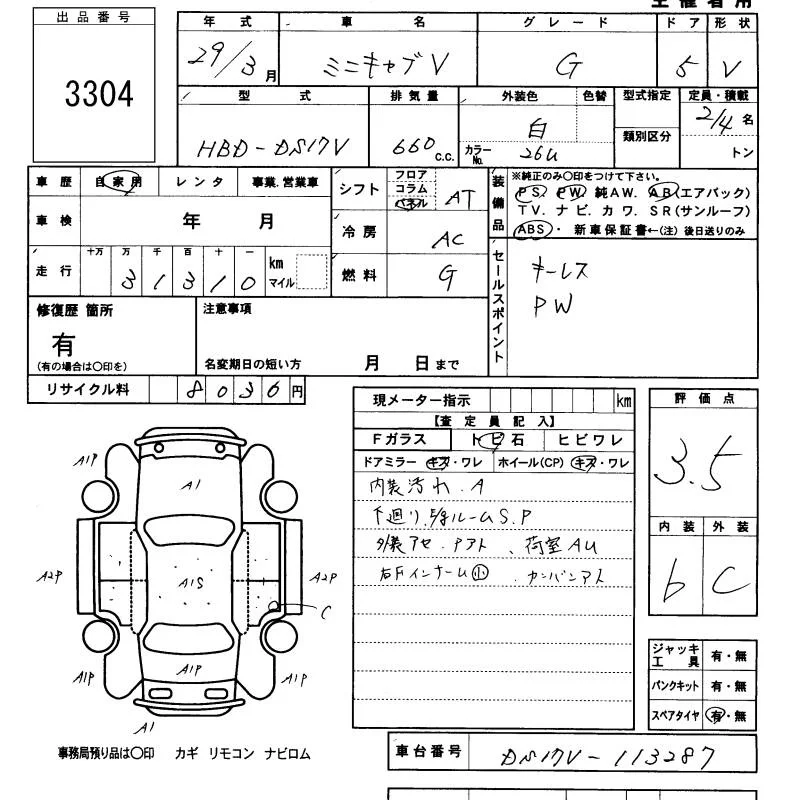 主催者用
出品番号
3304
年式 車名 グレード ドア 形状
29/3月 ミニキャブV G 5 V
型式 排気量 外装色 色替 型式指定 定員・積載
HBD-DS17V 660 c.c. 白 2/4 名
カラーNo. 26U 類別区分 トン
車歴 自家用 レンタ 事業.営業車
車検 年 月
走行 十万 万 千 百 十 一 km マイル
3 1 3 1 0
シフト フロア コラム パネル AT
冷房 AC
燃料 G
装備品
※純正のみ○印をつけて下さい。
PS. PW. 純AW. AB(エアバック)
TV. ナビ. カワ. SR(サンルーフ)
ABS・ 新車保証書←(注) 後日送りのみ
セールスポイント
キーレス
PW
修復歴 箇所
有
(有の場合は○印を)
注意事項
名変期日の短い方 月 日まで
リサイクル料 8036円
現メーター指示 km
【査定員記入】
Fガラス トビ石 ヒビワレ
ドアミラー キズ・ワレ ホイール(CP) キズ・ワレ
内装汚れ.A
下廻り.E/gルームS.P
外装アセ.Pアト、荷室AU
右Fインナーム小 カンバンアト
評価点
3.5
内装 外装
b C
ジャッキ工具 有・無
パンクキット 有・無
スペアタイヤ 有・無
A1P A1 A1P
A2P A1S A2P
C
A1P A1P A1P
A1
事務局預り品は○印 カギ リモコン ナビロム
車台番号 DS17V-113287